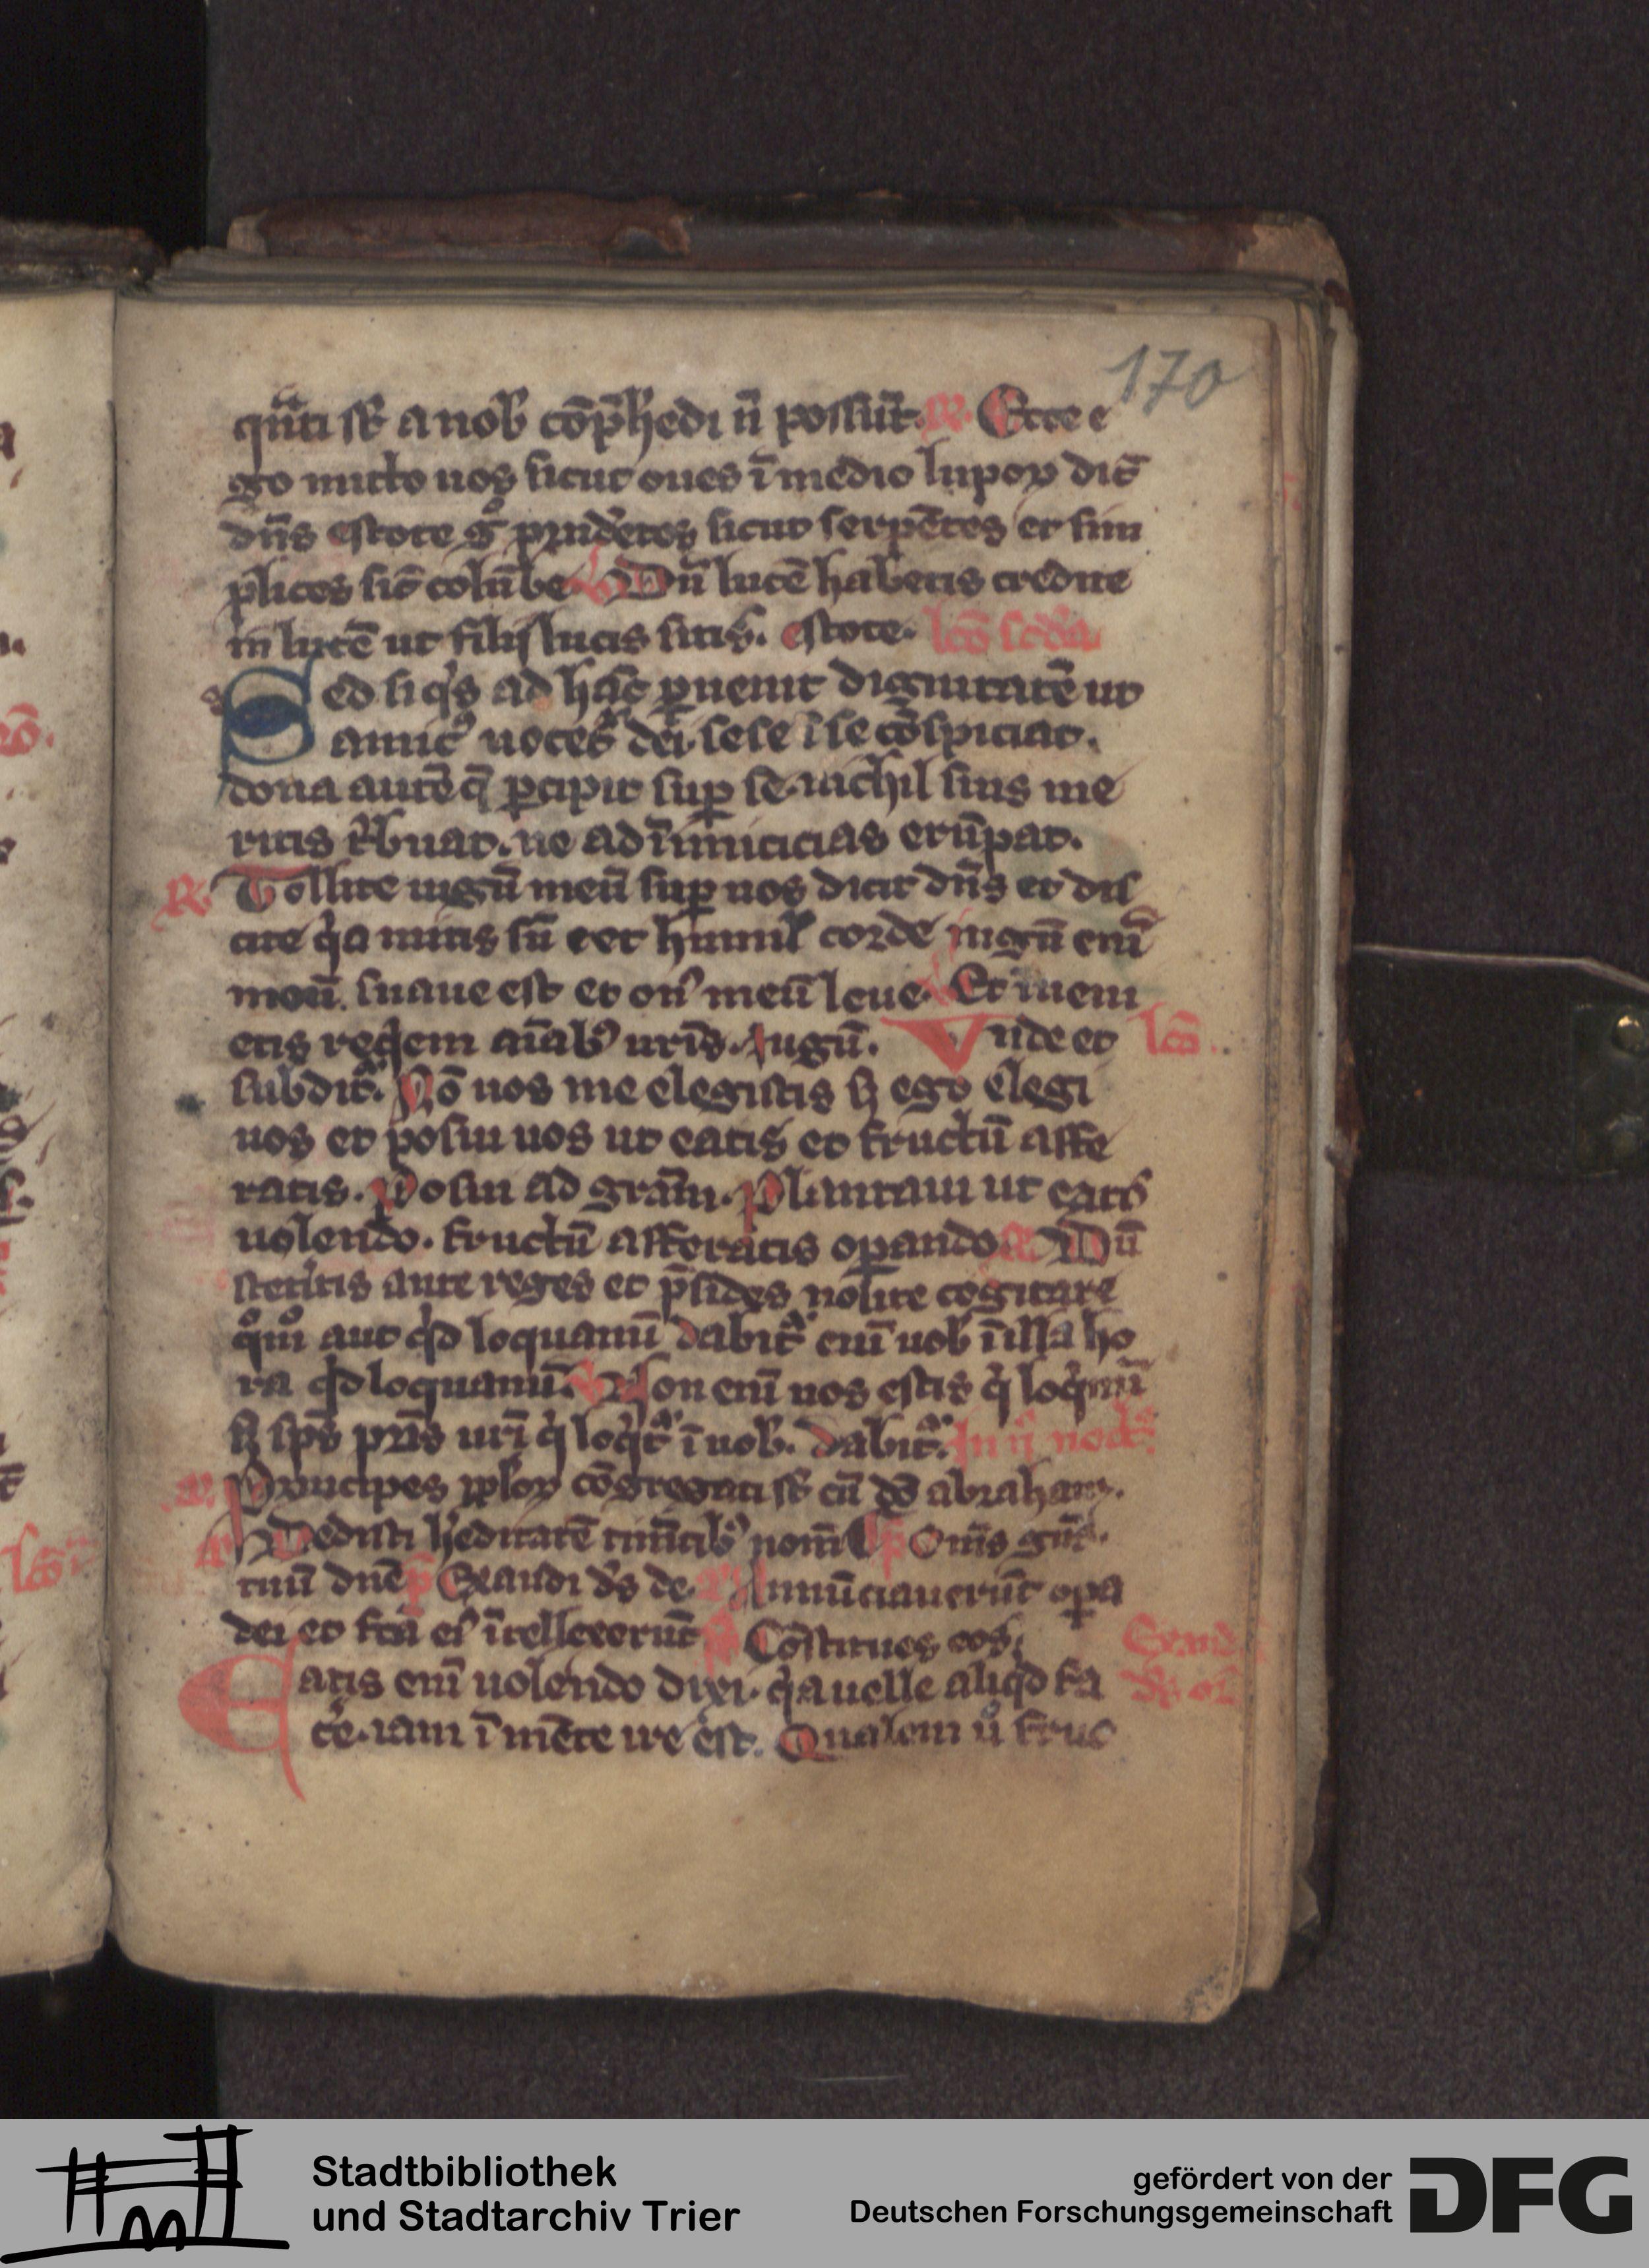 170
qͣnti st̄ a nob̄ cōp̄hedi n̄ possūt. R. Ecce e
go mitto uos sicut oues ī medio lupoꝝ dic̄
dn̄s estote gͦ prudētes sicut serpētes et sim
plices sic̄ colūbe V Dū lucē habetis credite
in lucē ut filij lucis sitis. estote. lcō scd̓a
Sed si qͥs ad hāc ꝑuenit dignitatē ut
amicꝰ uocetᷣ dei. sese ī se cōspiciat.
dona autē q̄ ꝑcipit suꝑ se. nichil suis me
ritis t̓buat. ne ad īimicicias erūpat.
R Tollite iugū meū suꝑ uos dicit dn̄s et dis
cite qͥa mitis sū et humil̓ corde iugū enī
meū suaue est et onꝰ meū leue. V Et inueni
etis reqͥem aīabꝰ ur̄is. iugū. Vnde et lcō.
subditᷣ. Nō uos me elegistis sꝫ ego elegi
uos et posui uos ut eatis et fructū affe
ratis. Posui ad gr̄am. Plantaui ut eatis
uolendo. fructū afferatis oꝑando. R Dū
stet̓itis ante reges et p̄sides nolite cogitare
qͦmͦ aut qͥd loquamī dabitᷣ enī uob̄ ī illa ho
ra qͥd loquamī. V Non enī uos estis qͥ loqͥmī
sꝫ sp̄s pr̄is ur̄i qͥ loqͥtᷣ ī uob̄. dabitᷣ. In ij noct̓
a Principes pp̄loꝝ cōgregati st̄ cū dō abraham.
a Dedisti h̓editatē timētibꝰ nom̄ ps̄ Om̄s gn̄t.
tuū dn̄e p̄ Exaudi d̓s de. a Annūciauerūt oꝑa
dei et fc̄a eiꝰ ītellexerūt V Cōstitues eos. Exaud
Eatis enī uolendo dixi. qͥa uelle aliqͥd fa
ce̓. iam ī mēte ire est. Qualem uͦ fruc
Stadtbibliothek
und Stadtarchiv Trier
gefördert von der
Deutschen Forschungsgemeinschaft
DFG